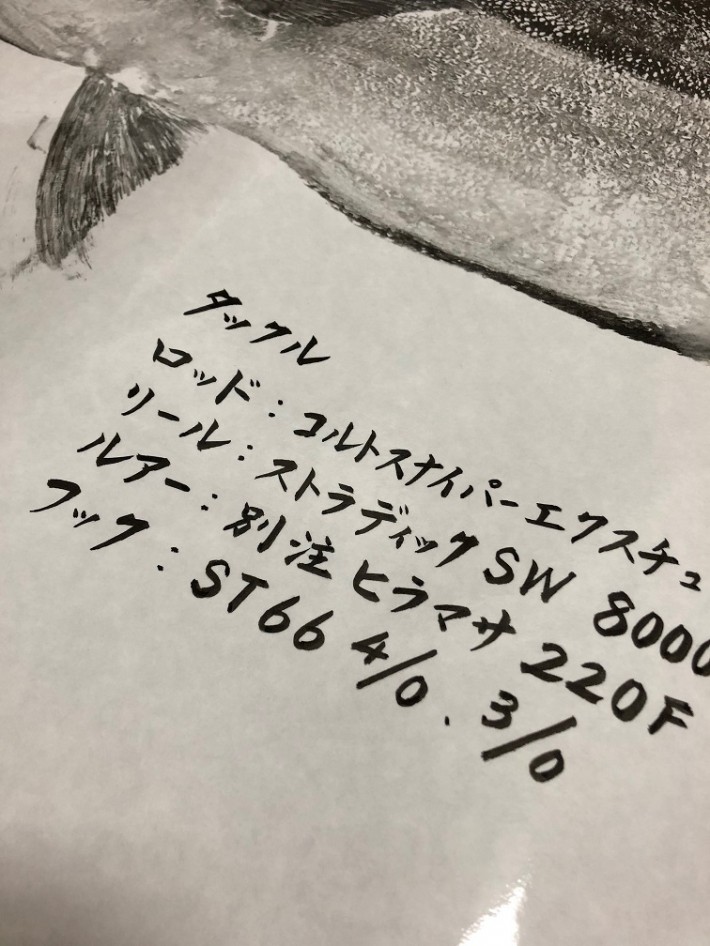 タックル
ロッド：コルトスナイパーエクスチュ
リール：ストラディックSW 8000
ルアー：別注ヒラマサ 220F
フック：ST66 4/0. 3/0